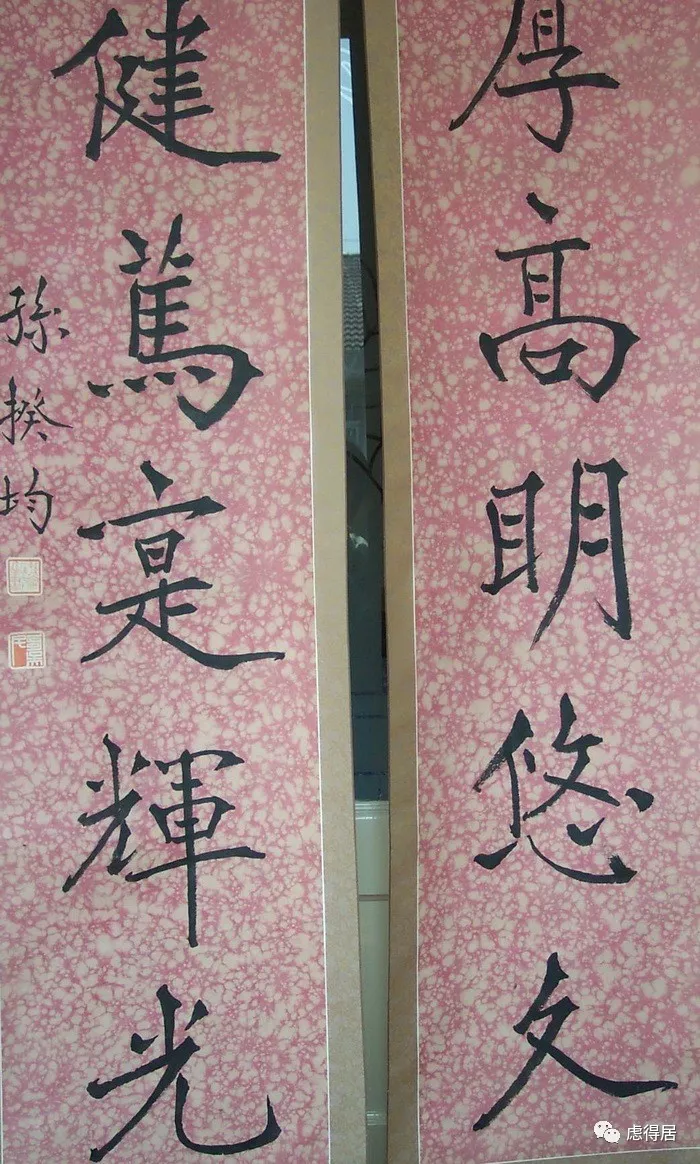 厚高明悠久
健篤寔輝光
孫揆均
虑得居